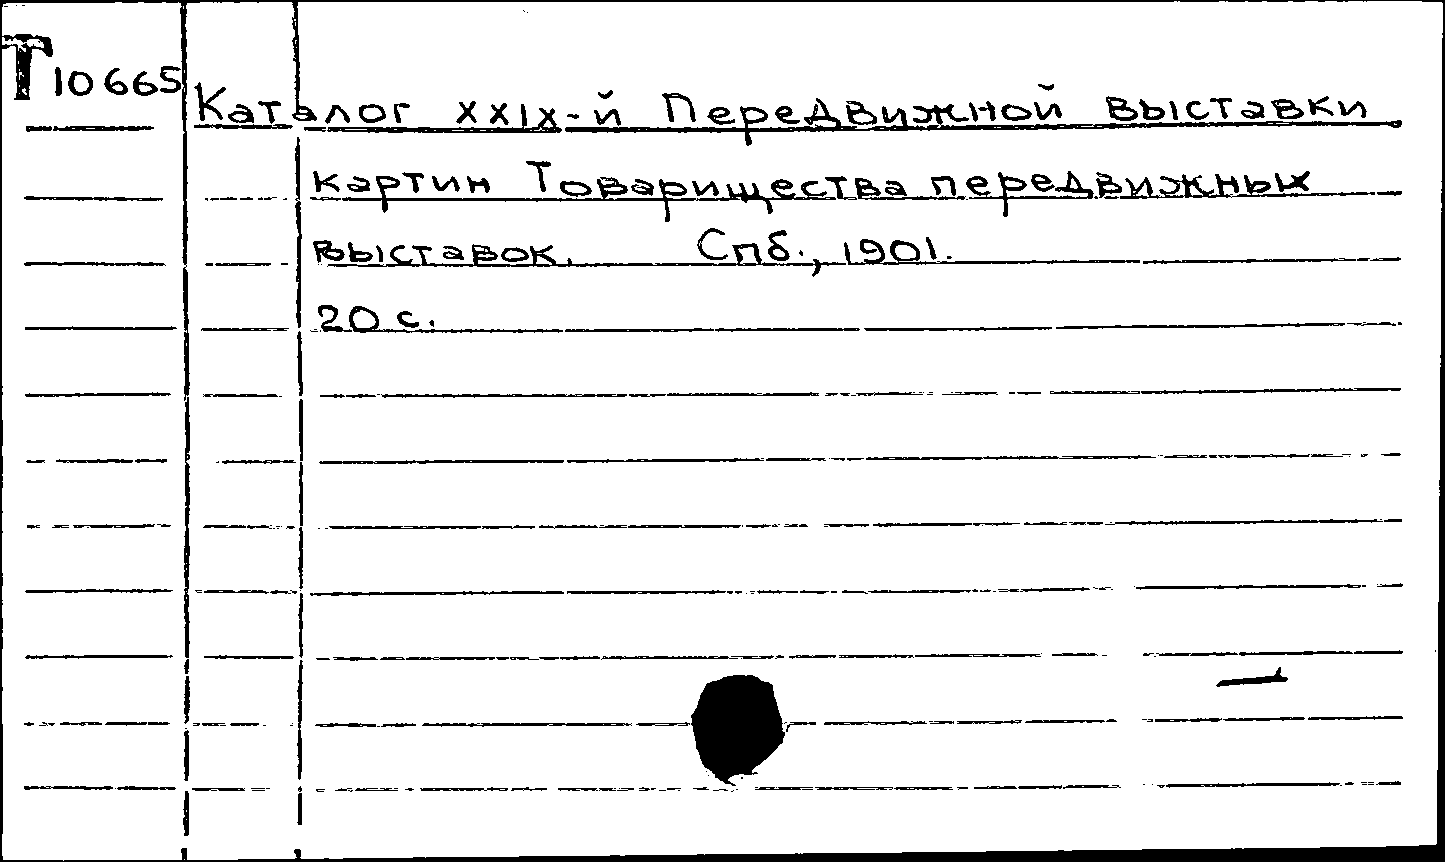 Т 10665
Каталог XXIX-й Передвижной выставки
картин Товарищества передвижных
выставок. Спб., 1901.
20 с.